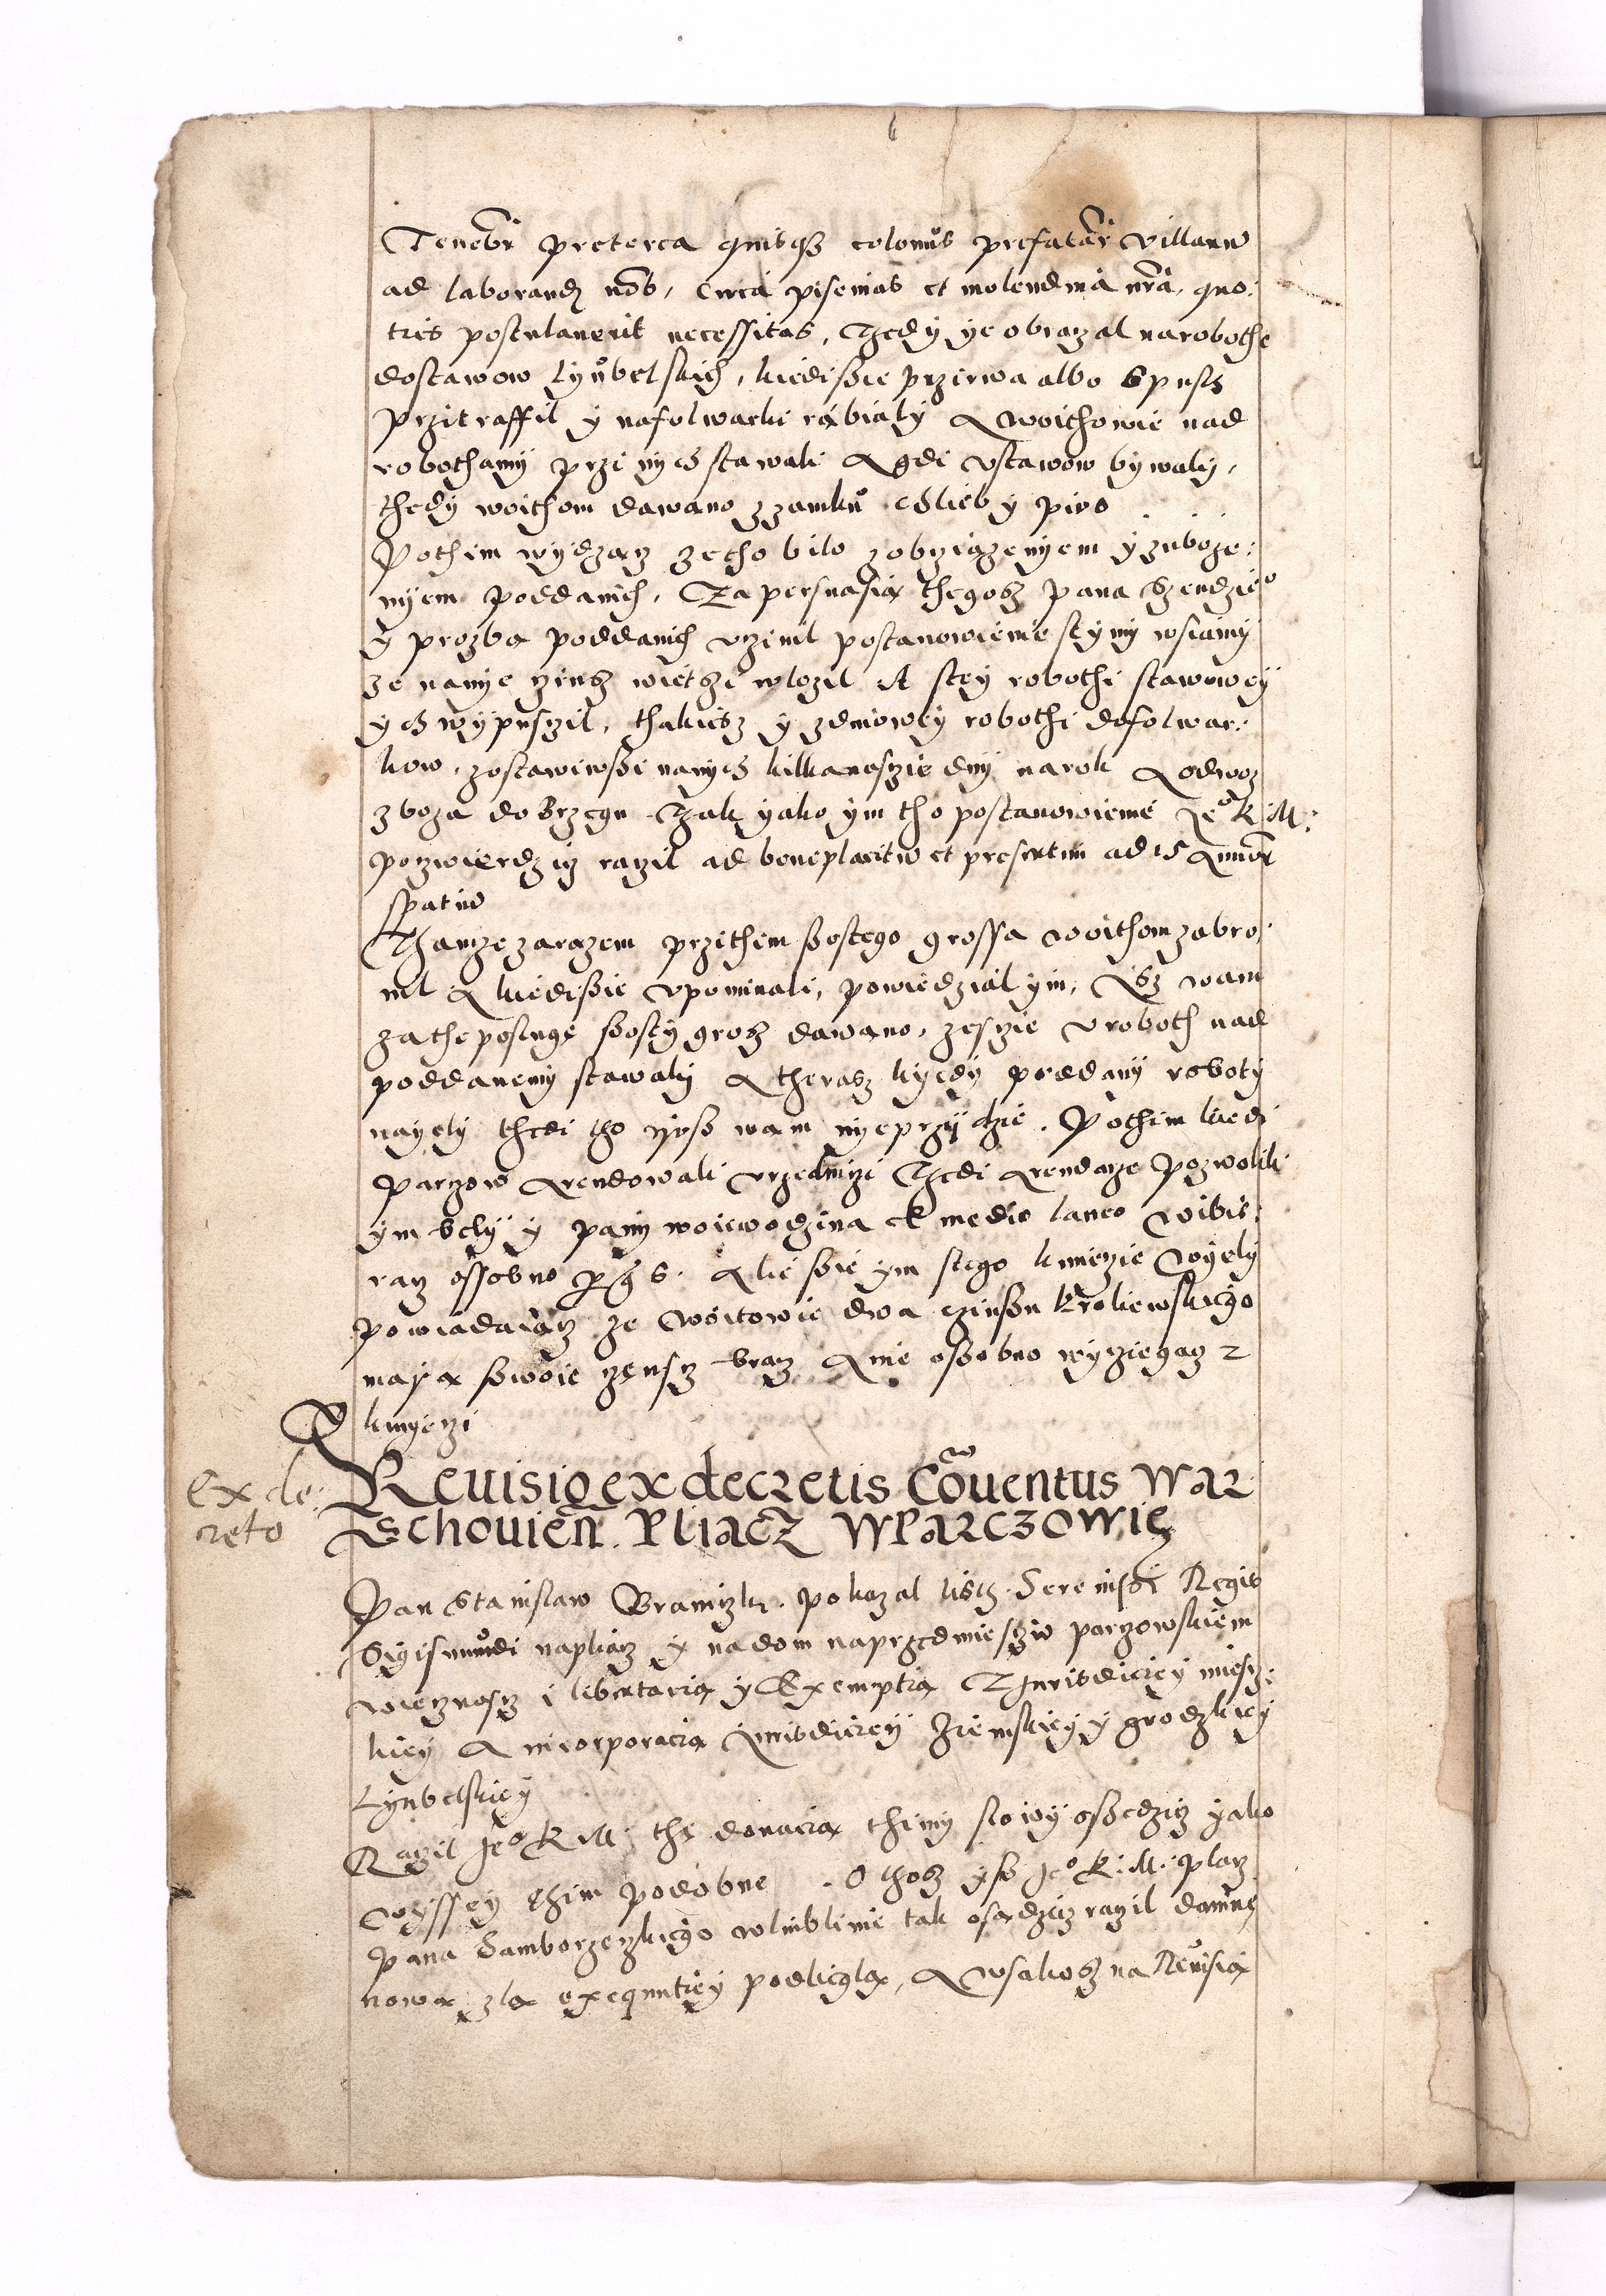 Tenebr preterea quisqz colonus prefatar villaru
ad laborandz nob, circa piscinas et molendina nra, quo:
ties postulauerit necessitas, Thedy ye obraczal narobothe
dostawow Lyubelskich, kiedissie przerwa albo spusth
przitraffil y nafolwarki rabialy A woithowie nad
robothamy przi nych stawali A gdi vstawow bywaly,
thedy woithom dawano zzamku chlieb y piwo
Pothim wydzacz ze tho bilo zobcziazenyem y zuboze:
nyem poddanich, Za persuasia thegosz pana Szendzieo
y prozba poddanich vczinil postanowienie stymy wsiamy
ze namye czinsz wietshi wlozil A stey robothi stawowey
ych wypusczil, thakiesz y zdniowey robothi dofolwar:
kow, zostawiwssi nanych kilkanasczie dny narok A odwoz
zboza do Brzegu Thak yako ym tho postanowienie Jeo K: M:
potzwierdzicz raczil ad beneplacitu et presertim ad 15 Annor
spatiu
Thamze zarazem przithim ssostego grossa woithom zabro:
nil A kiedissie vpominali, powiedzial ym, Isz wam
zathe posluge ssosty grosz dawano, zesczie vroboth nad
poddanemy stawaly A therasz kyedy poddany roboty
nayely thedi tho yusz wam nyeprzydzie. Pothim kiedi
parczow Arendowali vrzedniczi Thedi Arendarze pozwolili
ym bely y pany woiewodzina ex medio laneo wibie:
racz ossobno per g 6. Alie ssie ym stego kmieczie wyely
powiadaiacz ze woitowie dwa czinssu krolewskiego
maja sswoie czenscz bracz A nie osobno wyciegacz z
kmyeczi
Ex de:
creto
Reuisio ex decretis Couentus War
schouien. Pliacz W Parczowie
Pan Stanislaw Braniczki, pokazal listh Serenissi Regis
Sigismundi napliacz y nadom naprzedmiesciu parczowskiem
wiecznoscz i libertacia y Exemptia Z Jurisdiciey miesz:
kiey A incorporacia Jurisdiciey Ziemskiey y grodzkiey
Lyubelskiey
Raczil Jeo K M: the donacia thimy slowy ossedzicz yako
wyssey thim podobne. O thosz yss Jeo K: M: placz
pana Samborzeczkiego wlublinie tak osadzicz raczil danine
nowa, zla exequutiey podliegla, A wsakosz na Reuisia